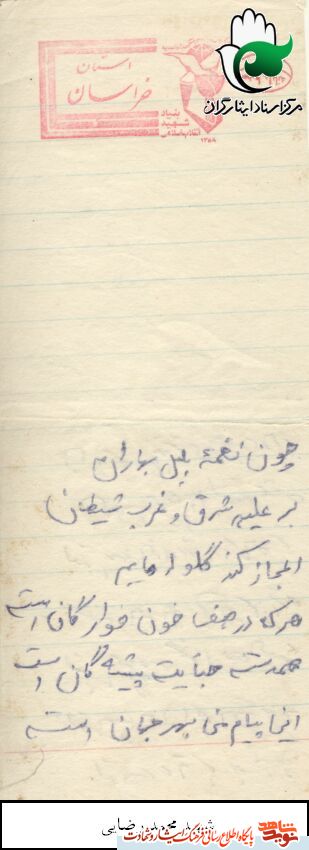 مرکز اسناد ایثارگران
استان
خراسان
بنیاد
شهید
انقلاب اسلامی
۱۳۵۸
چون نغمهٔ بلبل بهاران
بر علیه شرق و غرب شیطان
اعجاز کند گلوله هایم
هر که در صف خون خوارگان است
همدست جنایت پیشه گان است
این پیام من بهر جهان است
شهید محمد رضایی
نوید شاهد
پایگاه اطلاع رسانی فرهنگ ایثار و شهادت